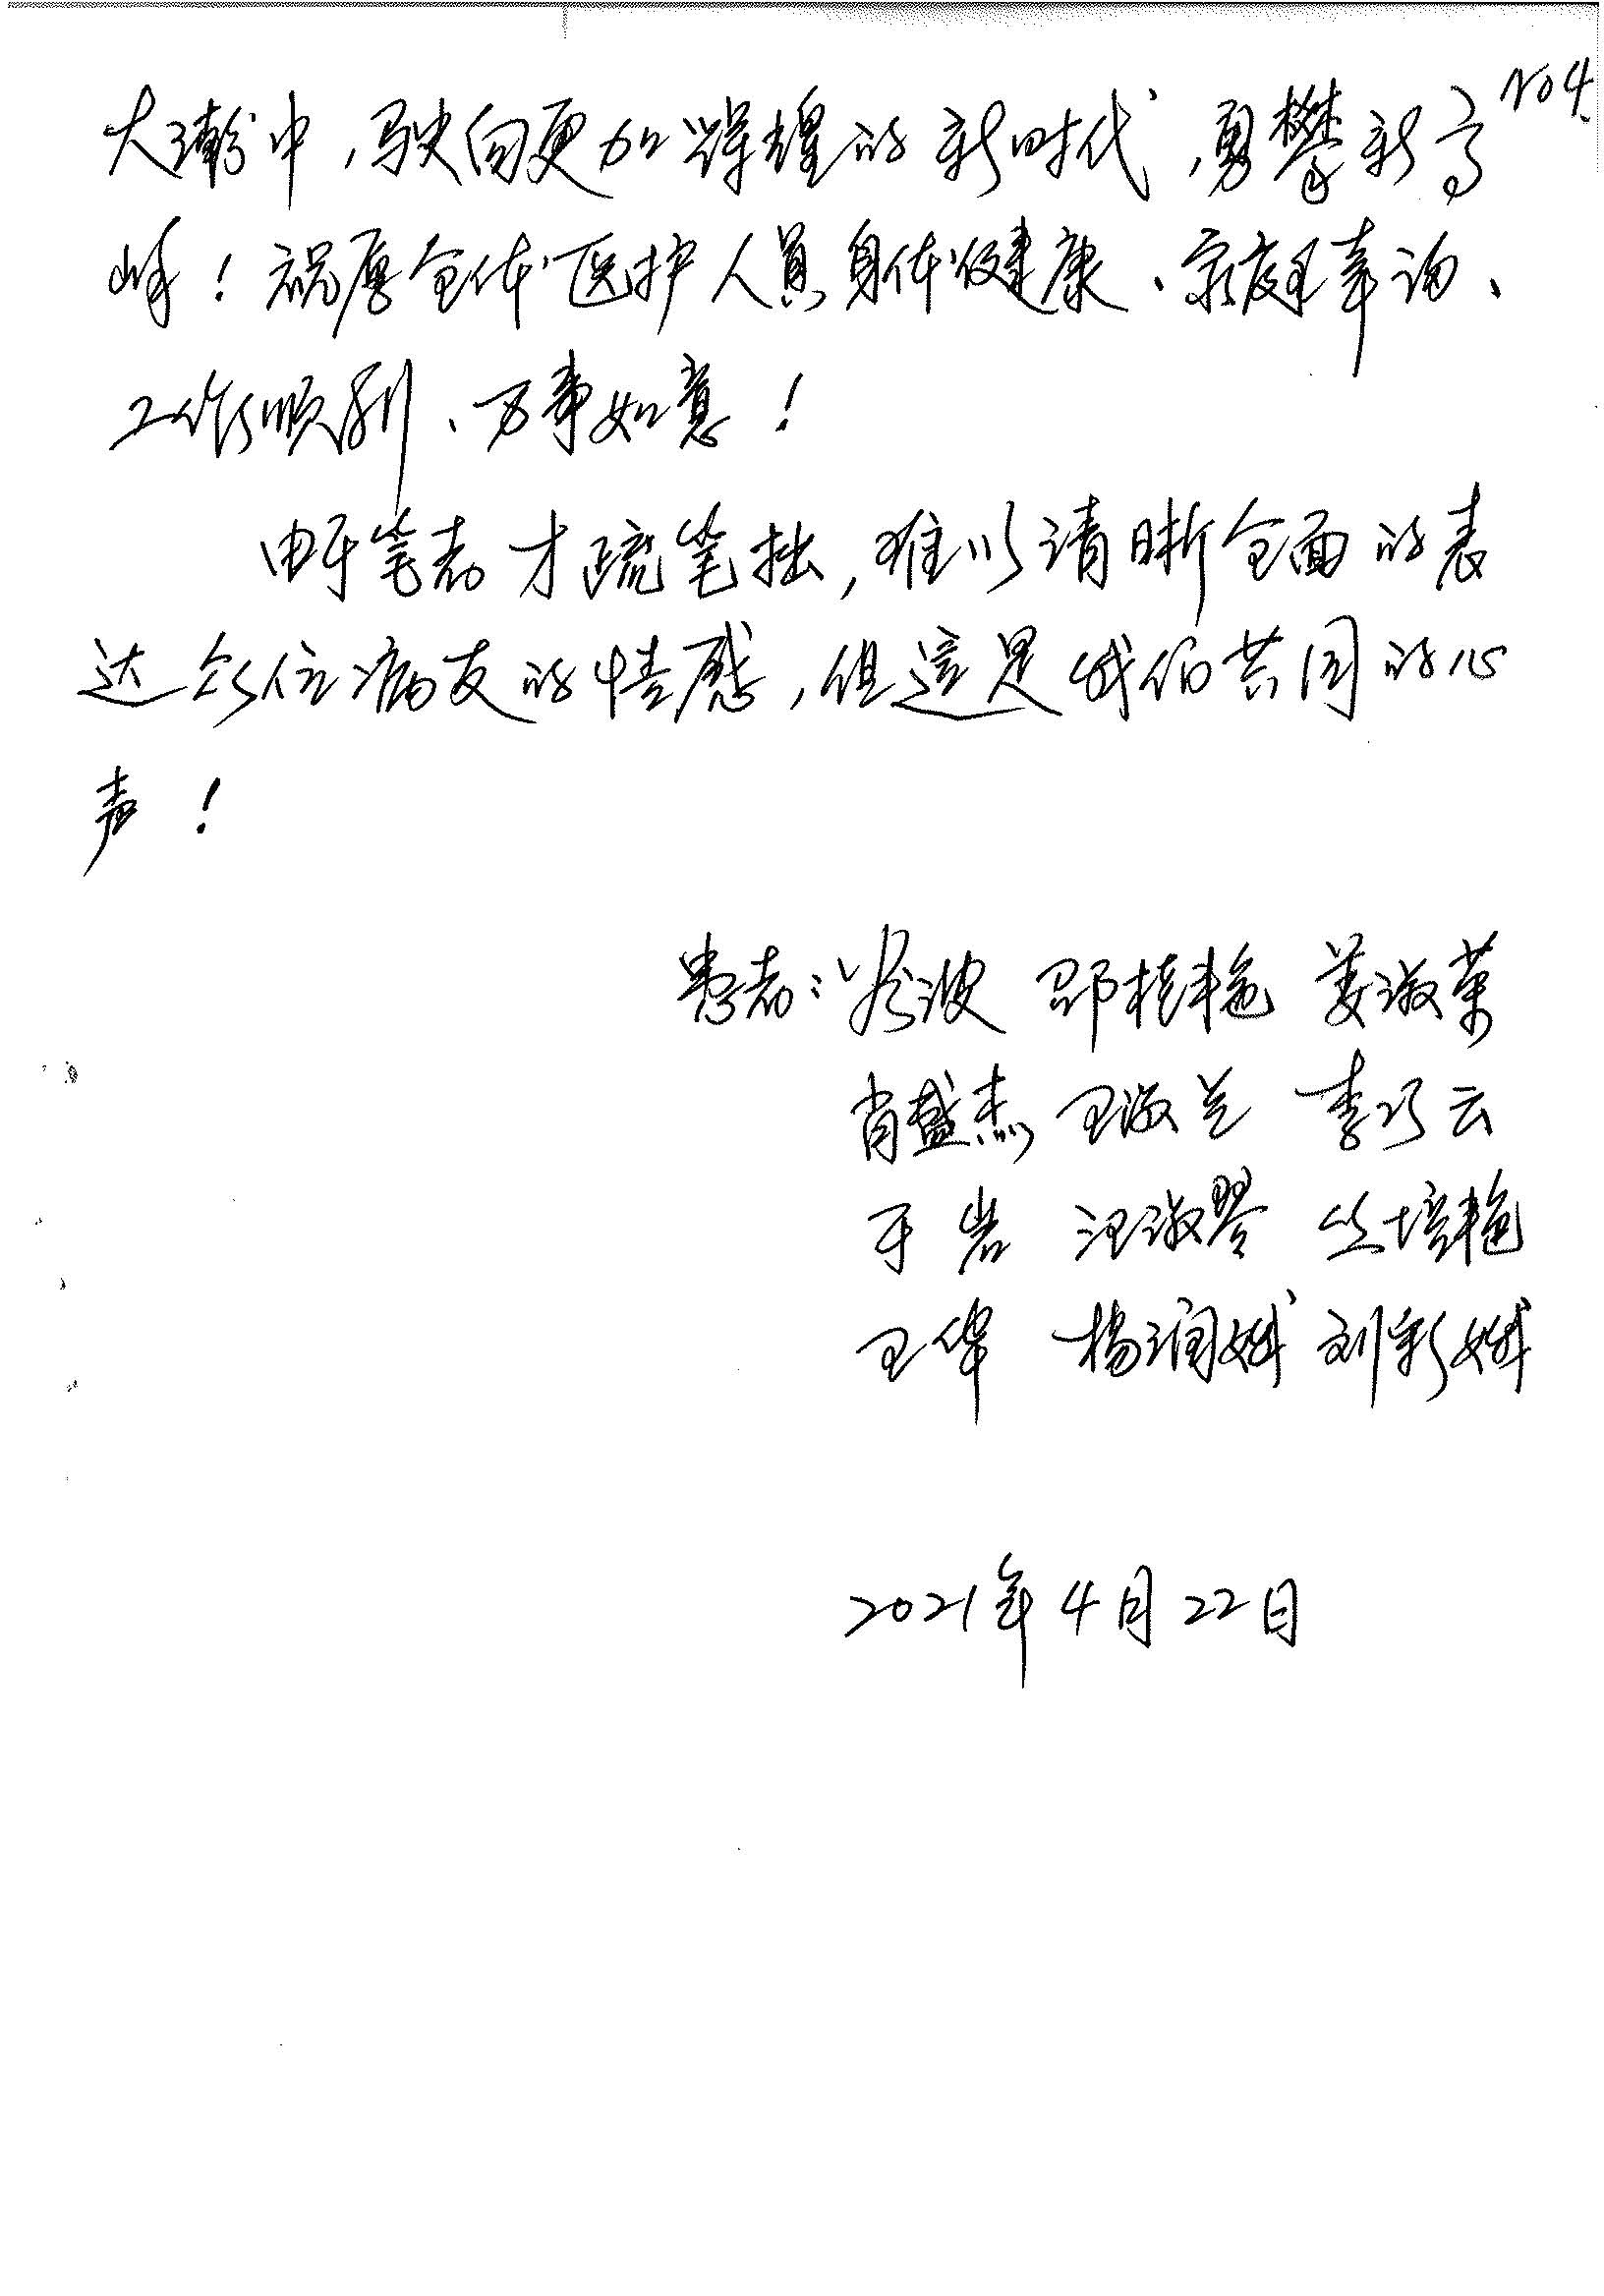 No4.
大潮中，驶向更加辉煌的新时代，勇攀新高
峰！祝愿全体医护人员身体健康、家庭幸福、
工作顺利、万事如意！
由于笔者才疏笔拙，难以清晰全面的表
达众位病友的情感，但这是我们共同的心
声！
患者：波 邵桂艳 姜淑荣
肖盛杰 王淑兰 李巧云
于岩 汪淑琴 丛培艳
王华 杨润娥 刘彩娥
2021年4月22日